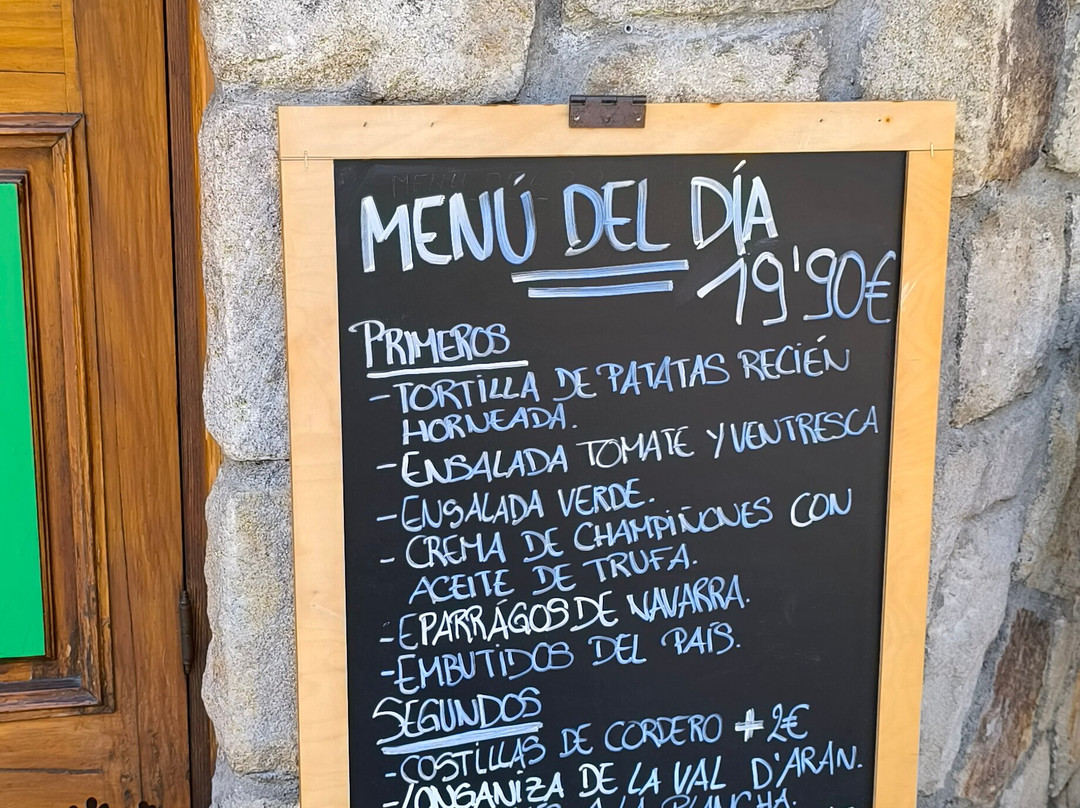 MENÚ DEL DÍA
19'90€
PRIMEROS
- TORTILLA DE PATATAS RECIÉN
HORNEADA.
- ENSALADA TOMATE Y VENTRESCA
- ENSALADA VERDE.
- CREMA DE CHAMPIÑONES CON
ACEITE DE TRUFA.
- EPARRÁGOS DE NAVARRA.
- EMBUTIDOS DEL PAÍS.
SEGUNDOS
- COSTILLAS DE CORDERO + 2€
- LONGANIZA DE LA VAL D'ARAN.
A LA PLANCHA.